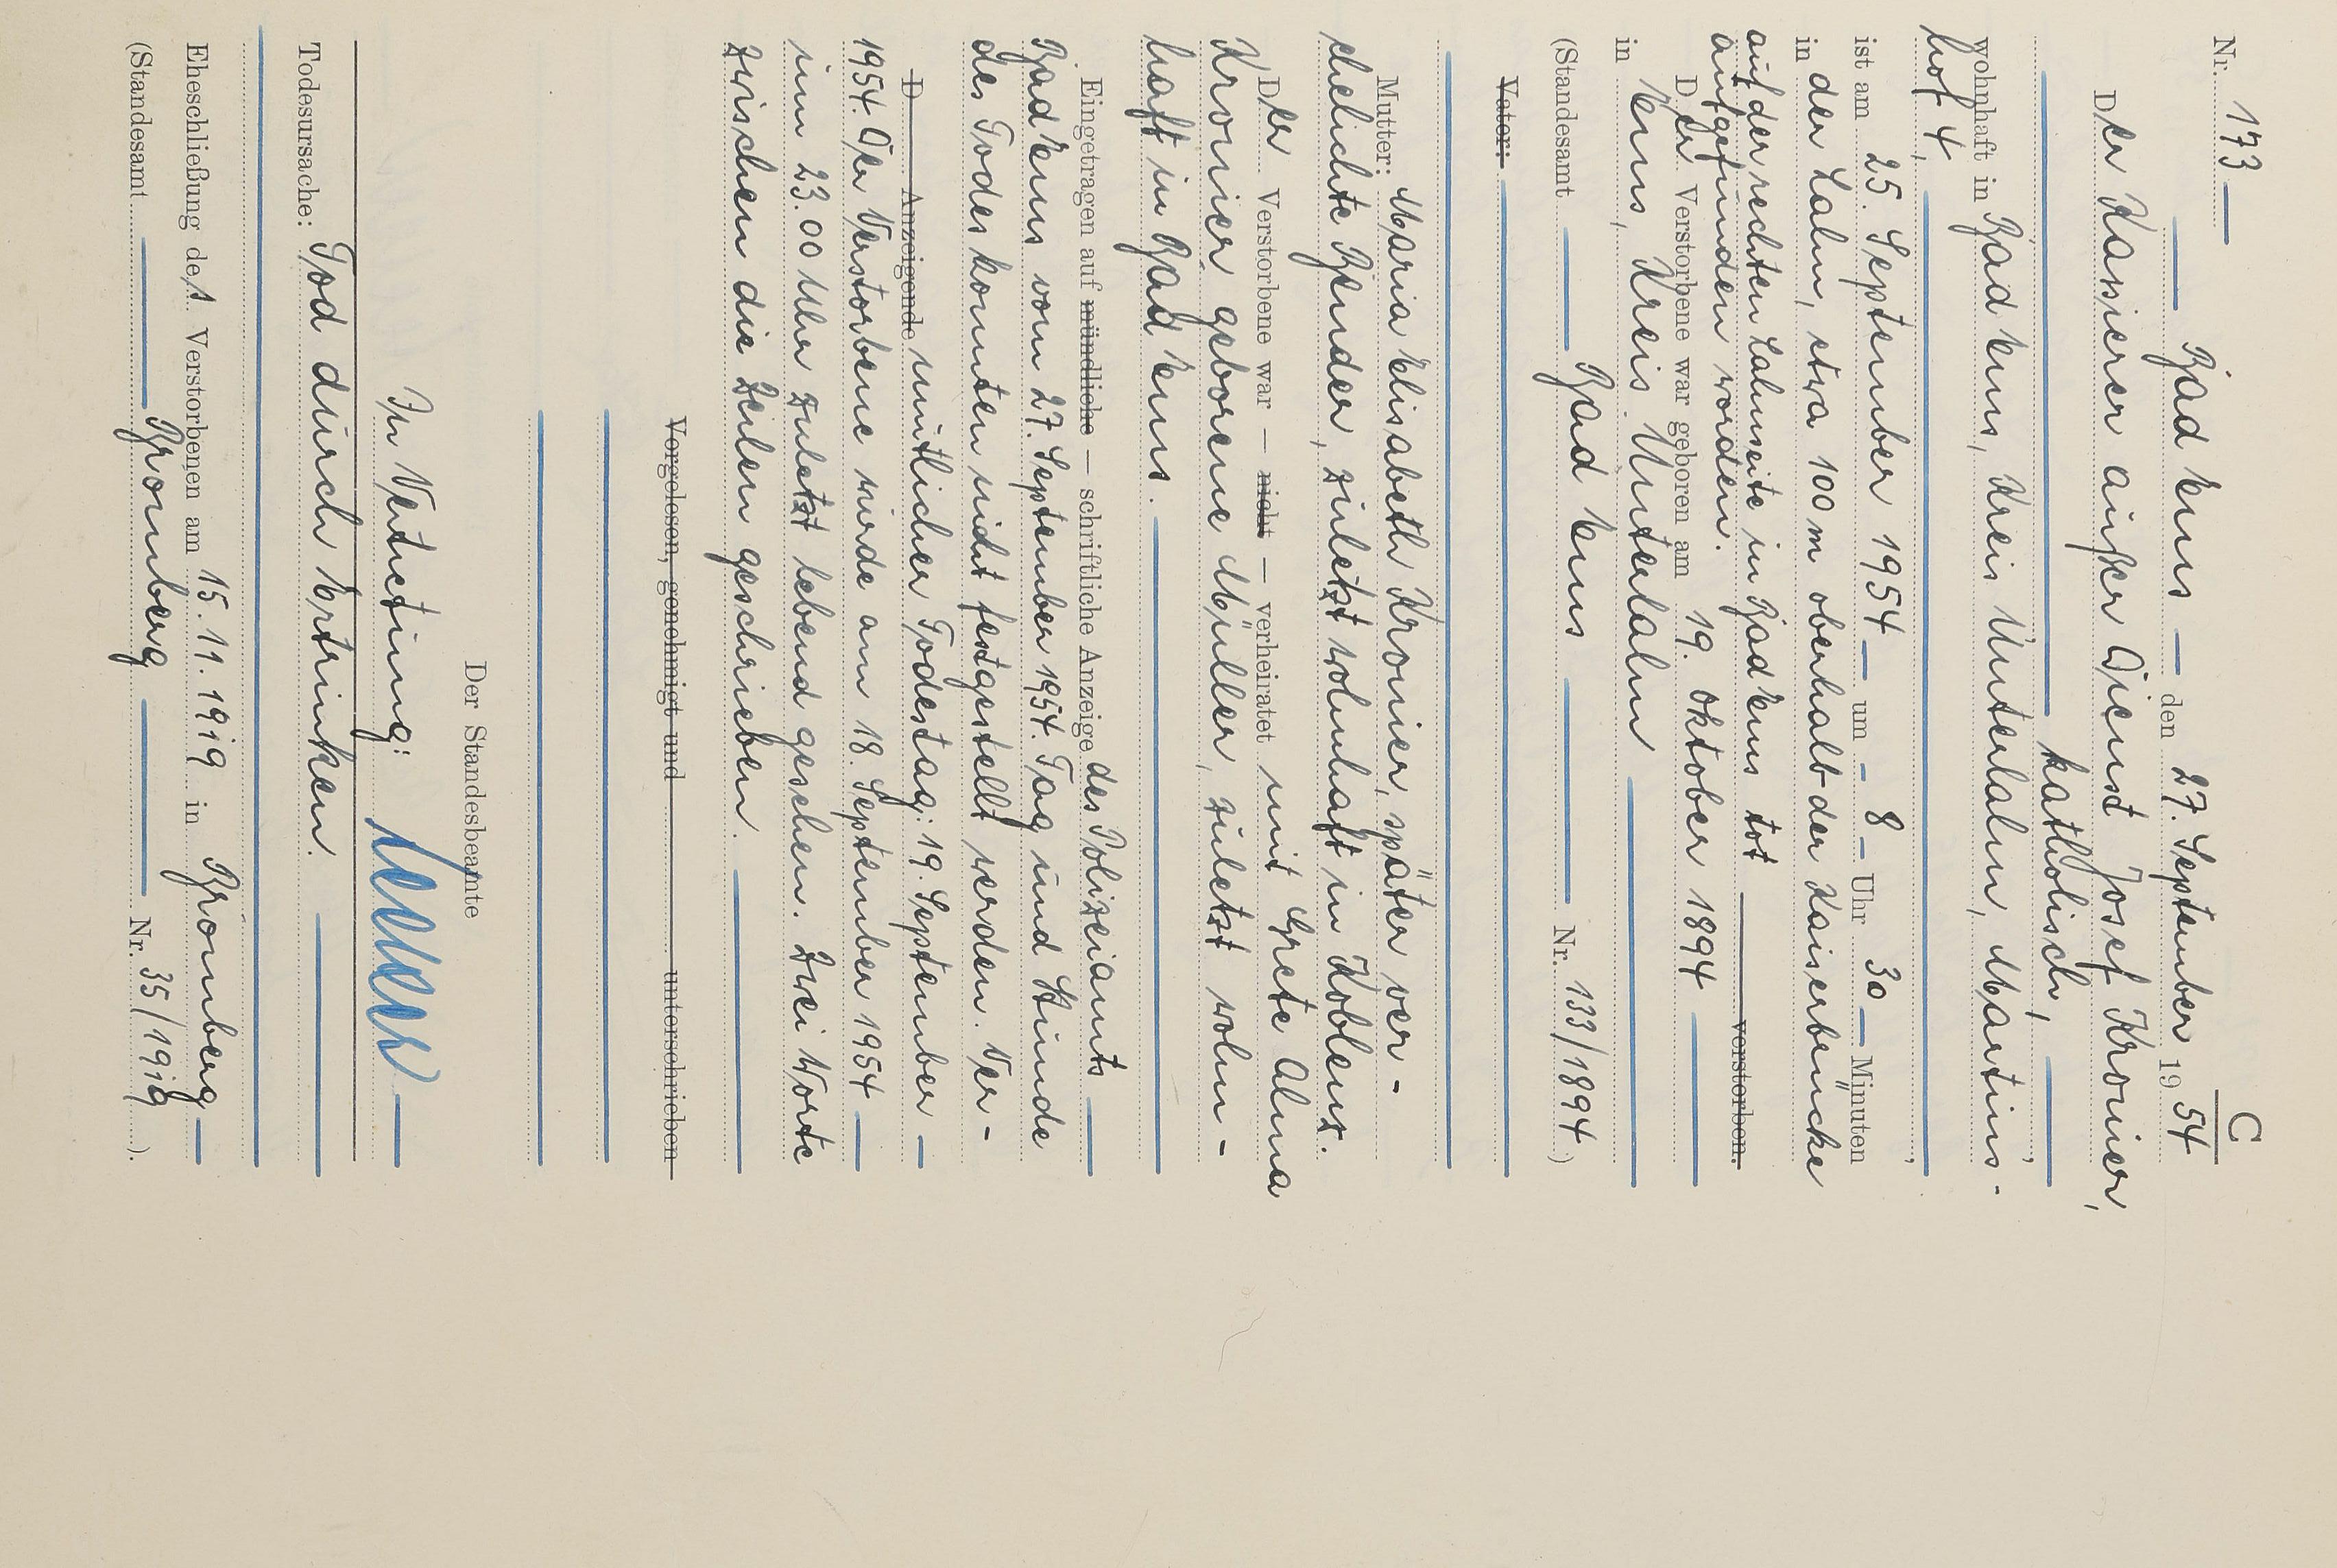 C
Nr. 173
Bad Ems den 27. September 1954
Der Kassierer außer Dienst Josef Kronier,
katholisch,
wohnhaft in Bad Ems, Kreis Unterlahn, Martins-
hof 4,
ist am 25. September 1954 um 8 Uhr 30 Minuten
in der Lahn, etwa 100 m oberhalb der Kaiserbrücke
auf der rechten Lahnseite in Bad Ems tot verstorben.
aufgefunden worden.
Der Verstorbene war geboren am 19. Oktober 1894
in Ems, Kreis Unterlahn
(Standesamt Bad Ems Nr. 133/1894)
Vater:
Mutter: Maria Elisabeth Kronier, später ver-
ehelichte Bender, zuletzt wohnhaft in Koblenz.
Der Verstorbene war — nicht — verheiratet mit Grete Alma
Kronier geborene Müller, zuletzt wohn-
haft in Bad Ems.
Eingetragen auf mündliche — schriftliche Anzeige des Polizeiamts
Bad Ems vom 27. September 1954. Tag und Stunde
des Todes konnten nicht festgestellt werden. Ver-
D Anzeigende mutlicher Todestag: 19. September
1954. Der Verstorbene wurde am 18. September 1954
um 23.00 Uhr zuletzt lebend gesehen. Zwei Worte
zwischen die Zeilen geschrieben.
Vorgelesen, genehmigt und unterschrieben
Der Standesbeamte
In Vertretung:
Todesursache: Tod durch Ertrinken.
Eheschließung des Verstorbenen am 15.11.1919 in Bromberg
(Standesamt Bromberg Nr. 35/1919).